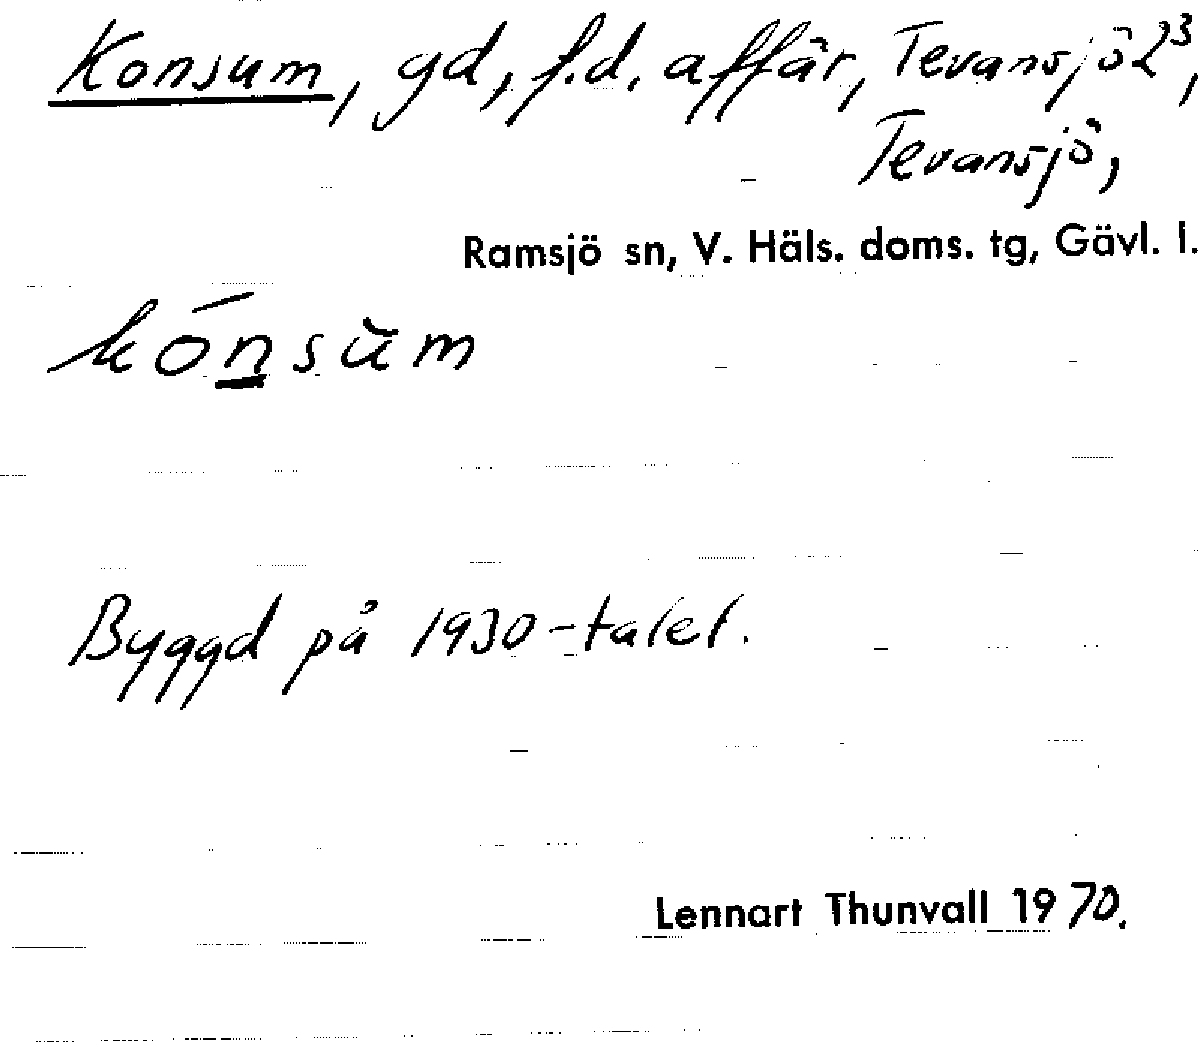 Konsum, gd, f.d. affär, Tevansjö 2³,
Tevansjö,
Ramsjö sn, V. Häls. doms. tg, Gävl. l.
kónsŭm
Byggd på 1930-talet.
Lennart Thunvall 1970.